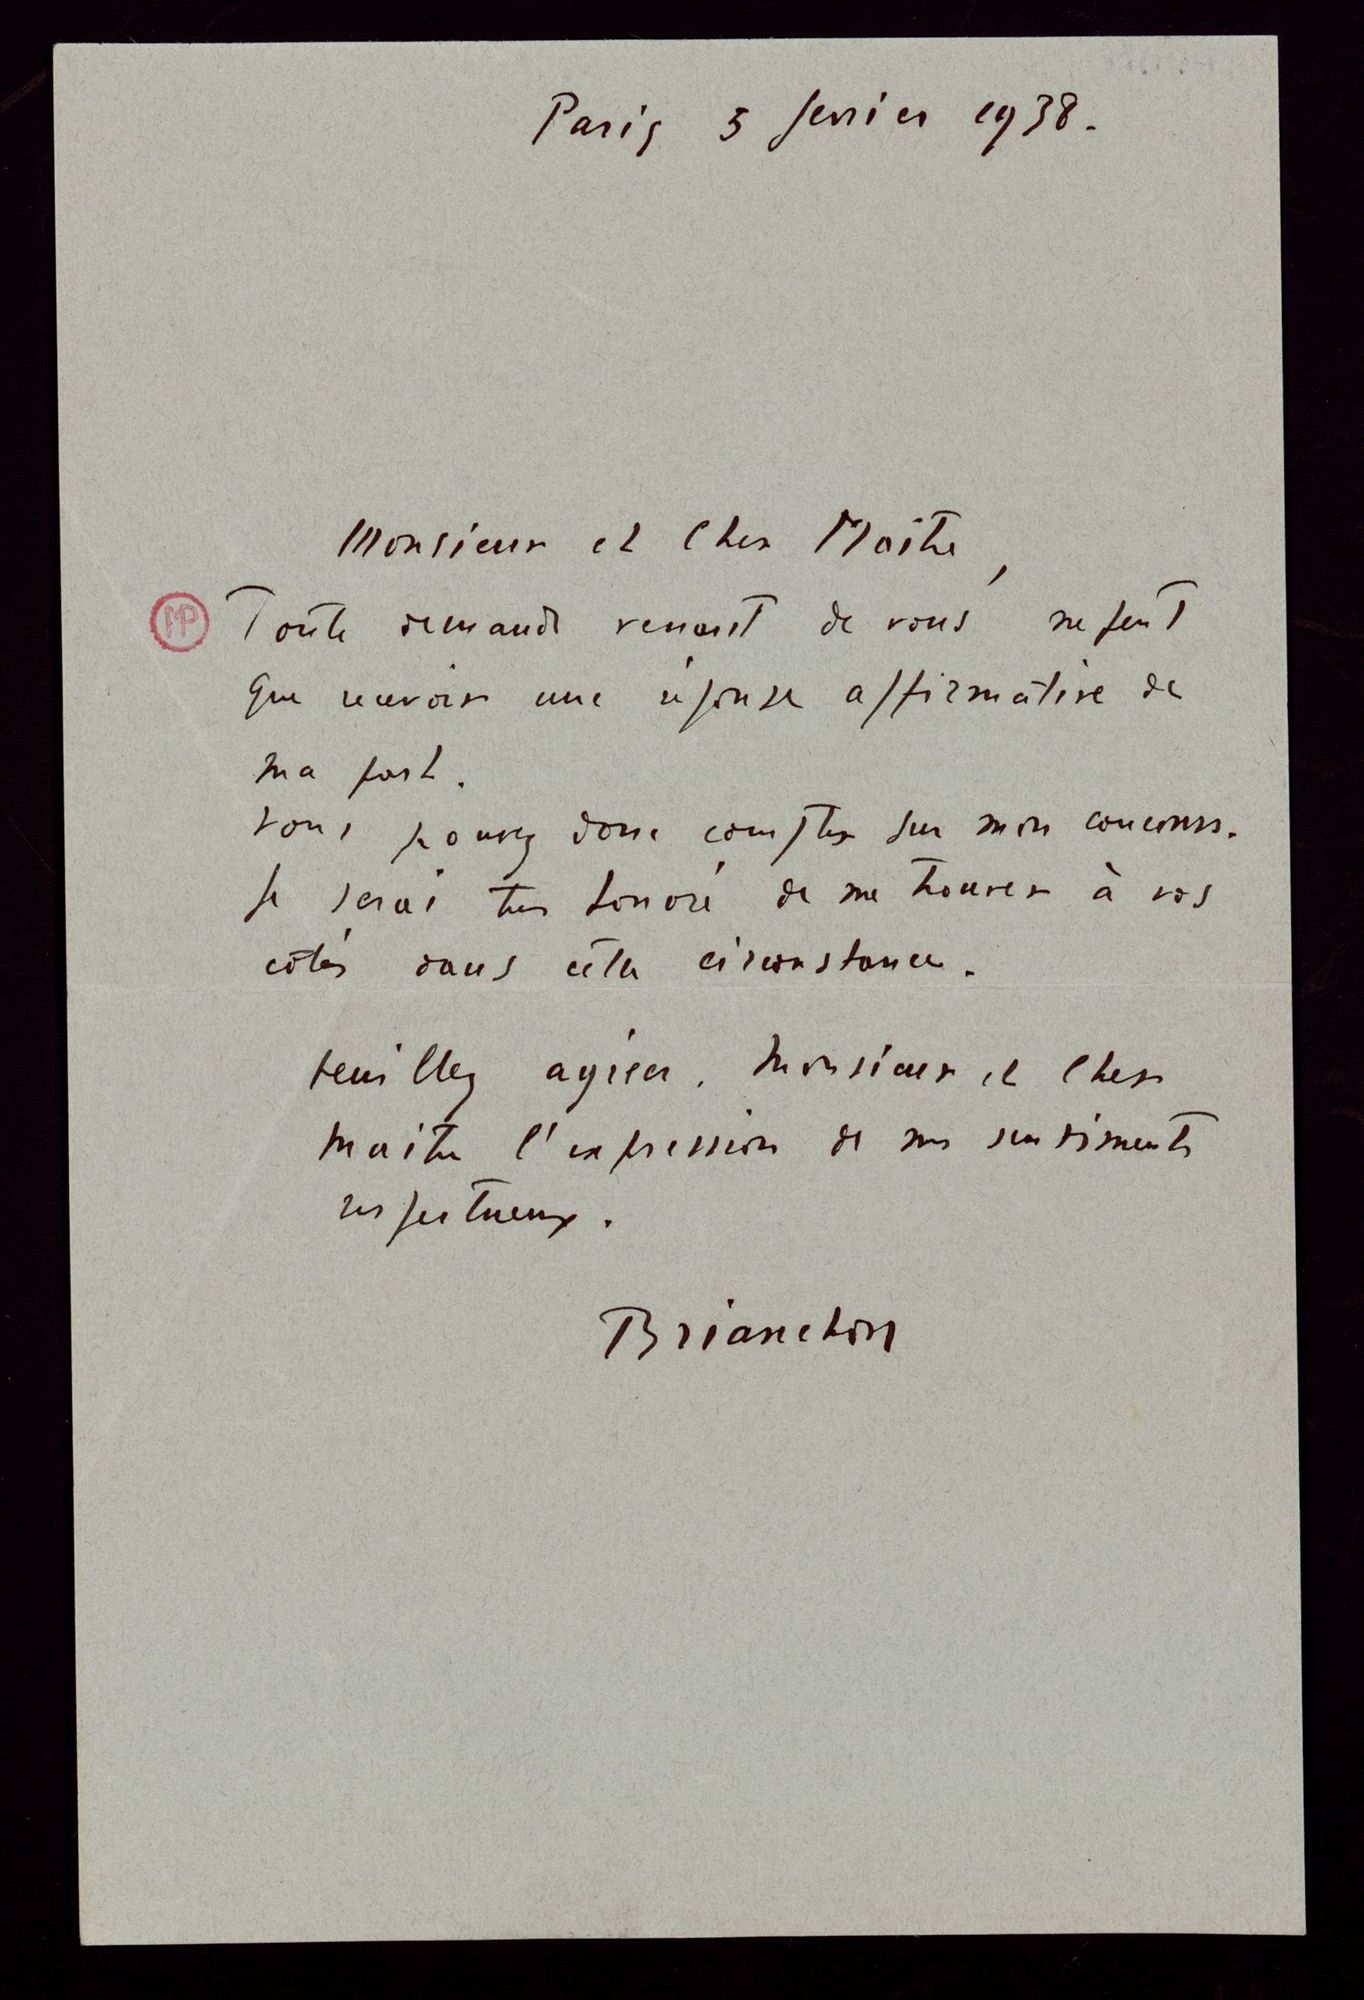 Paris 5 fevrier 1938.
Monsieur et Cher Maître,
MP
Toute demande venant de vous ne peut
que recevoir une réponse affirmative de
ma part.
Vous pouvez donc compter sur mon concours.
Je serai très honoré de me trouver à vos
côtés dans cette circonstance.
Veuillez agréer, Monsieur et Cher
Maitre l'expression de mes sentiments
respectueux.
Brianchon